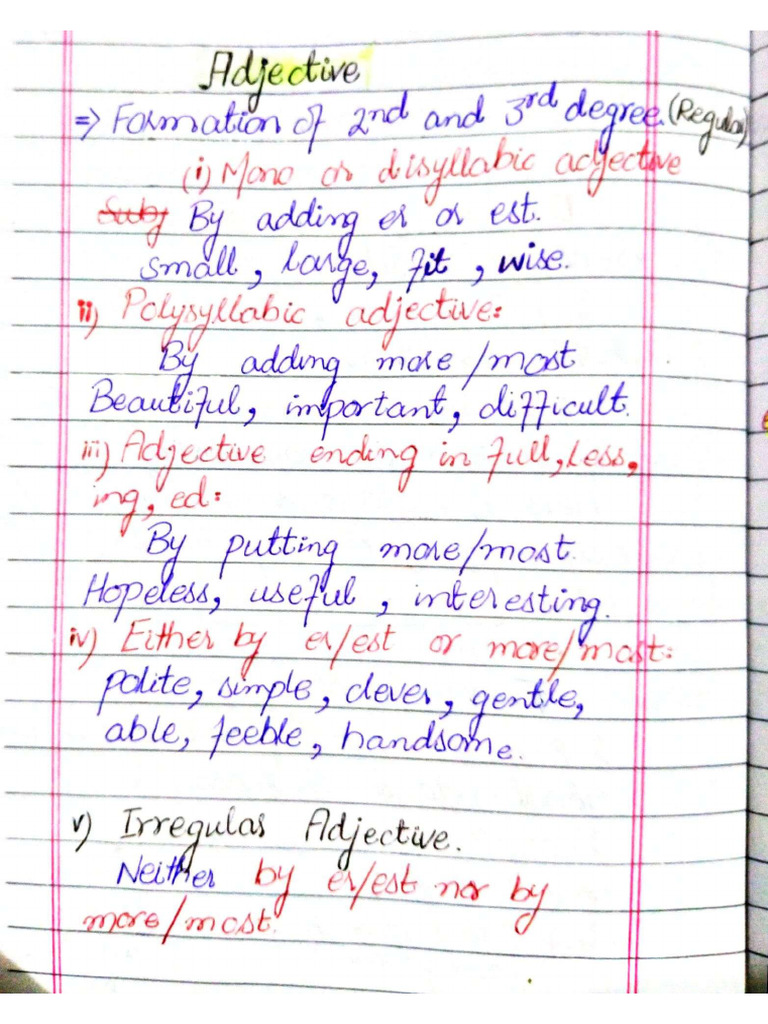 Adjective
=> Formation of 2nd and 3rd degree. (Regular)
(i) Mono or disyllabic adjective
Subj By adding er or est.
small, large, fit, wise.
ii) Polysyllabic adjective:
By adding more/most
Beautiful, important, difficult.
iii) Adjective ending in full, less,
ing, ed:
By putting more/most.
Hopeless, useful, interesting.
iv) Either by er/est or more/most:
polite, simple, clever, gentle,
able, feeble, handsome.
v) Irregular Adjective.
Neither by er/est nor by
more/most.